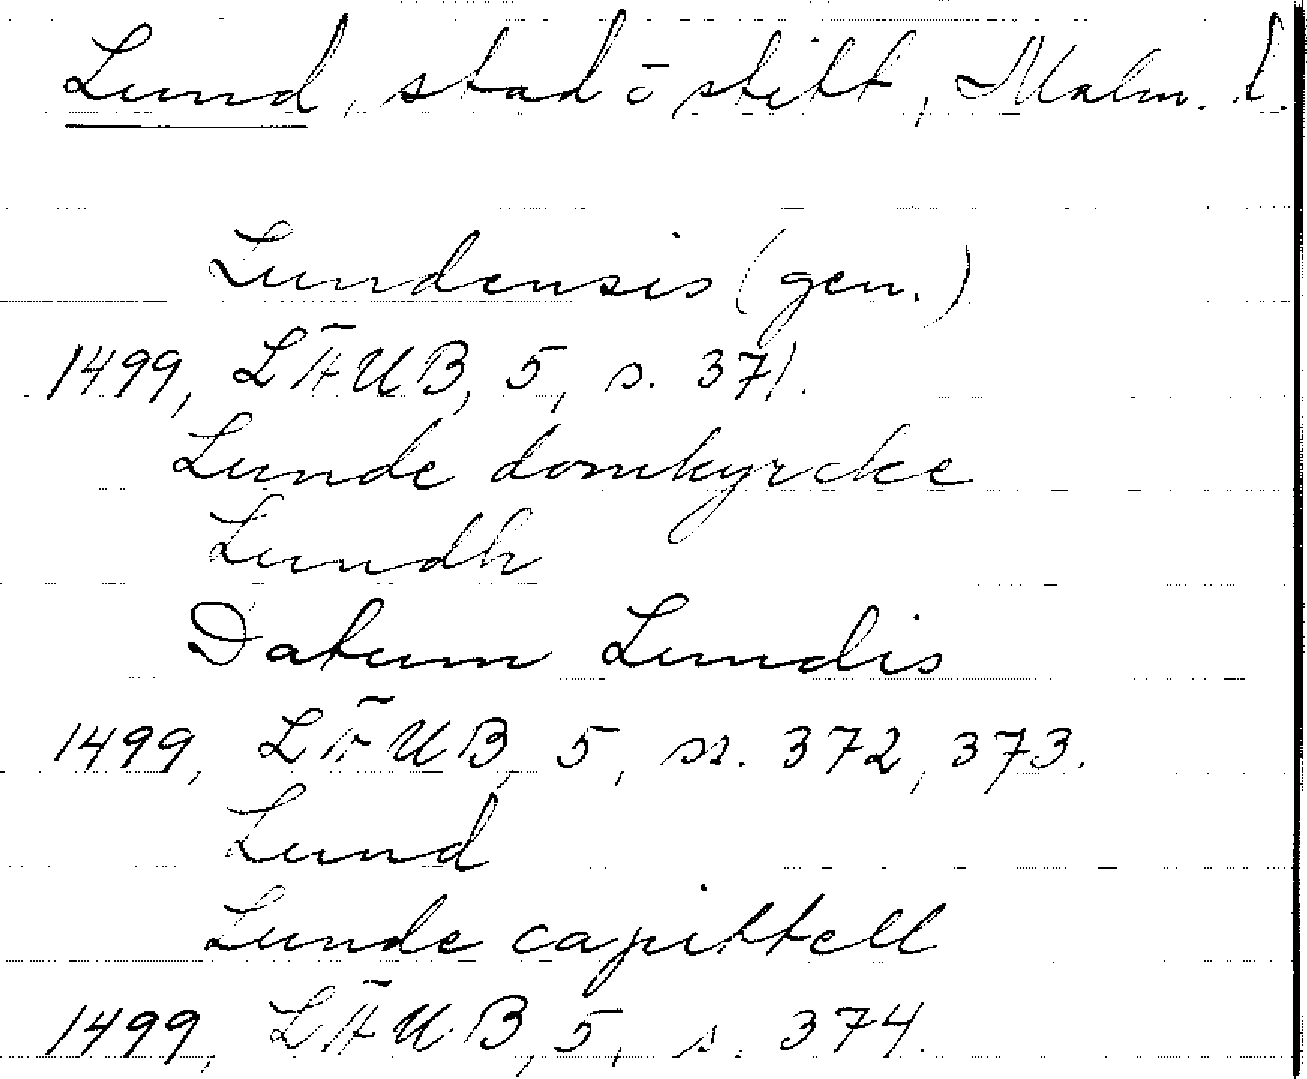 Lund, stad o stift, Malm. l.
Lundensis (gen.)
1499, LÄUB, 5, s. 371.
Lunde domkyrcke
Lundh
Datum Lundis
1499, LÄUB, 5, ss. 372, 373.
Lund
Lunde capittell
1499, LÄUB, 5, s. 374.